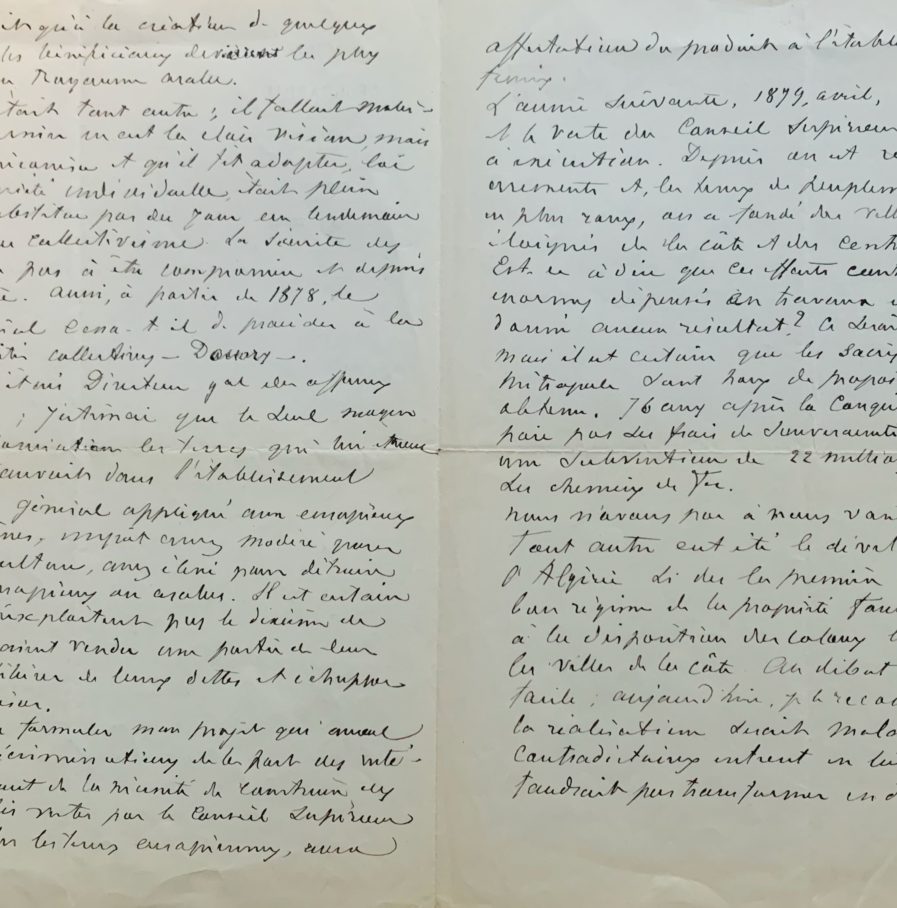 qu'à la création de quelques
les bénéficiaires devinrent les plus
Royaume arabe.
était tout autre ; il fallait mobi-
eut la claire vision mais
et qu'il fit adopter, loi
individuelle, était plein
pas du jour au lendemain
collectivisme. La Société des
pas à être compromise et depuis
Aussi, à partir de 1878, le
cessa-t-il de procéder à la
collectives — Douars —.
étais Directeur gal des affaires
; j'estimai que le seul moyen
les terres qui lui
pouvait dans l'établissement
général appliqué aux européens
impôt assez modéré pour
culture, assez élevé pour détruire
européens ou arabes. Il est certain
exploitent pas le dixième de
vendu une partie de leur
de leurs dettes et échapper
formuler mon projet qui amena
récriminations de la part des inté-
de la nécessité de construire des
votés par le Conseil Supérieur
les terres européennes, aura
affectation du produit à l'établ
ferrées.
L'année suivante, 1879, avril,
et le vote du Conseil Supérieur
à exécution. Depuis on est re
errements et, les terres de peuplem
en plus rares, on a fondé des vill
éloignés de la côte et des centr
Est-ce à dire que ces efforts cons
énormes dépensés en travaux
donné aucun résultat ? Ce serai
mais il est certain que les sacri
Métropole sont hors de propor
obtenu. 76 ans après la Conqu
paie pas ses frais de Souveraineté
une Subvention de 22 millio
ses chemins de fer.
Nous n'avons pas à nous van
Tout autre eut été le dével
l'Algérie si dès les premiè
bon régime de la propriété fon
à la disposition des colons l
les villes de la côte. Au début
facile ; aujourd'hui, je le reco
la réalisation serait mala
contradictoires entrent en lu
faudrait pas transformer en